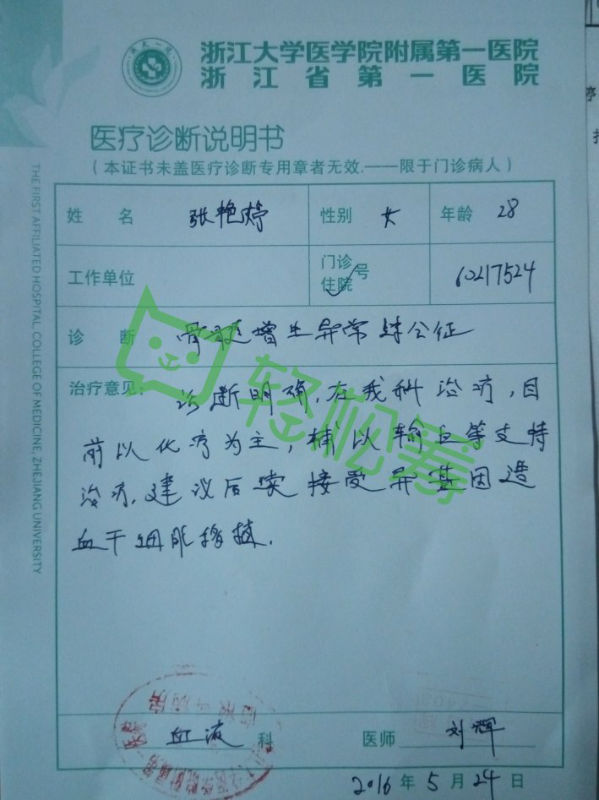 浙江大学医学院附属第一医院
浙江省第一医院
医疗诊断说明书
(本证书未盖医疗诊断专用章者无效.——限于门诊病人)
THE FIRST AFFILIATED HOSPITAL COLLEGE OF MEDICINE, ZHEJIANG UNIVERSITY
姓 名 张艳婷 性别 女 年龄 28
工作单位 门诊 住院 号 60217524
诊 断 骨髓增生异常综合征
治疗意见: 诊断明确,在我科治疗,目
前以化疗为主,辅以输血等支持
治疗.建议后续接受异基因造
血干细胞移植.
轻松筹
血液 科 医师 刘辉
2016 年 5 月 24 日